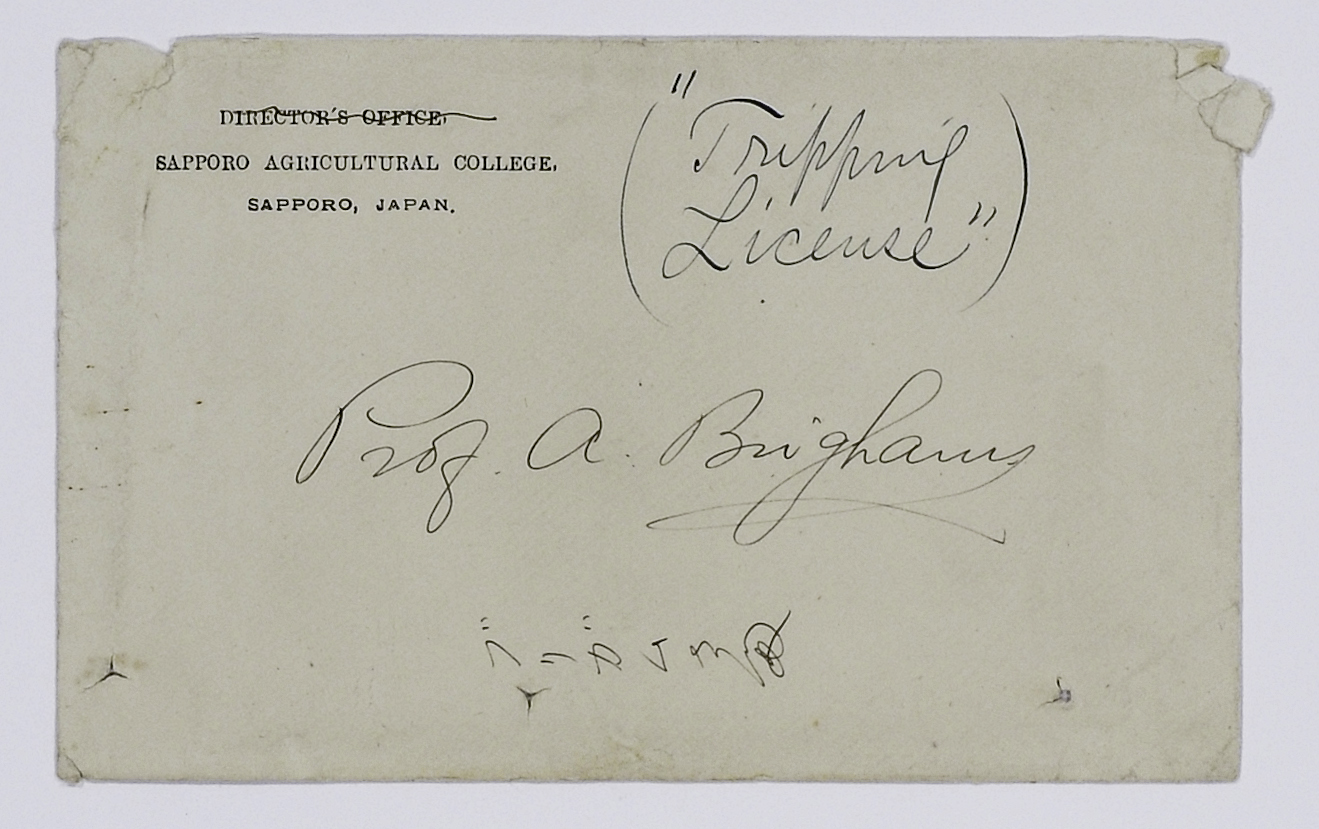 DIRECTOR'S OFFICE,
SAPPORO AGRICULTURAL COLLEGE,
SAPPORO, JAPAN.
("Tripping
License")
Prof. A. Brigham